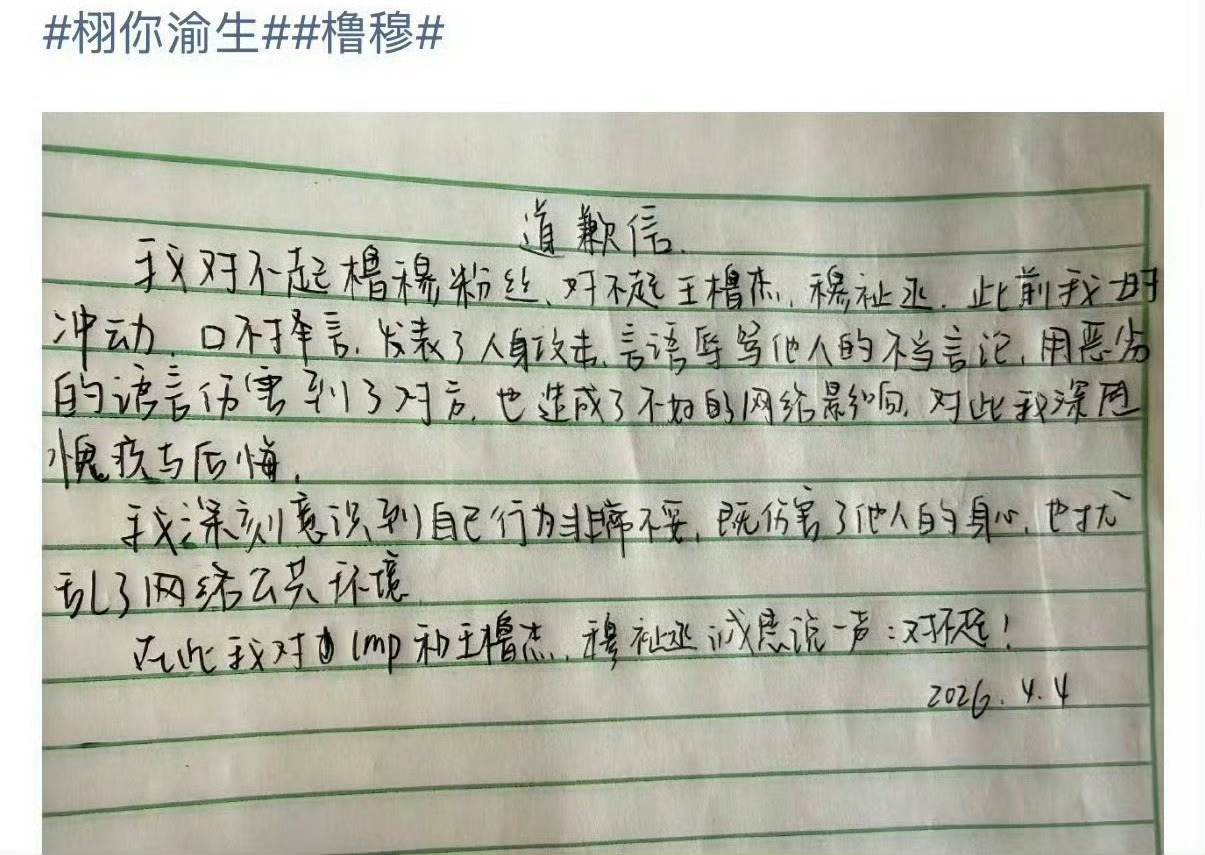 #栩你渝生##橹穆#
道歉信.
我对不起橹穆粉丝、对不起王橹杰、穆祉丞.此前我一时
冲动、口不择言,发表了人身攻击、言语辱骂他人的不当言论,用恶劣
的语言伤害到了对方,也造成了不好的网络影响,对此我深感
愧疚与后悔,
我深刻意识到自己行为非常不妥,既伤害了他人的身心,也扰
乱了网络公共环境
在此我对 lmp和王橹杰、穆祉丞诚恳说一声:对不起!
2026.4.4